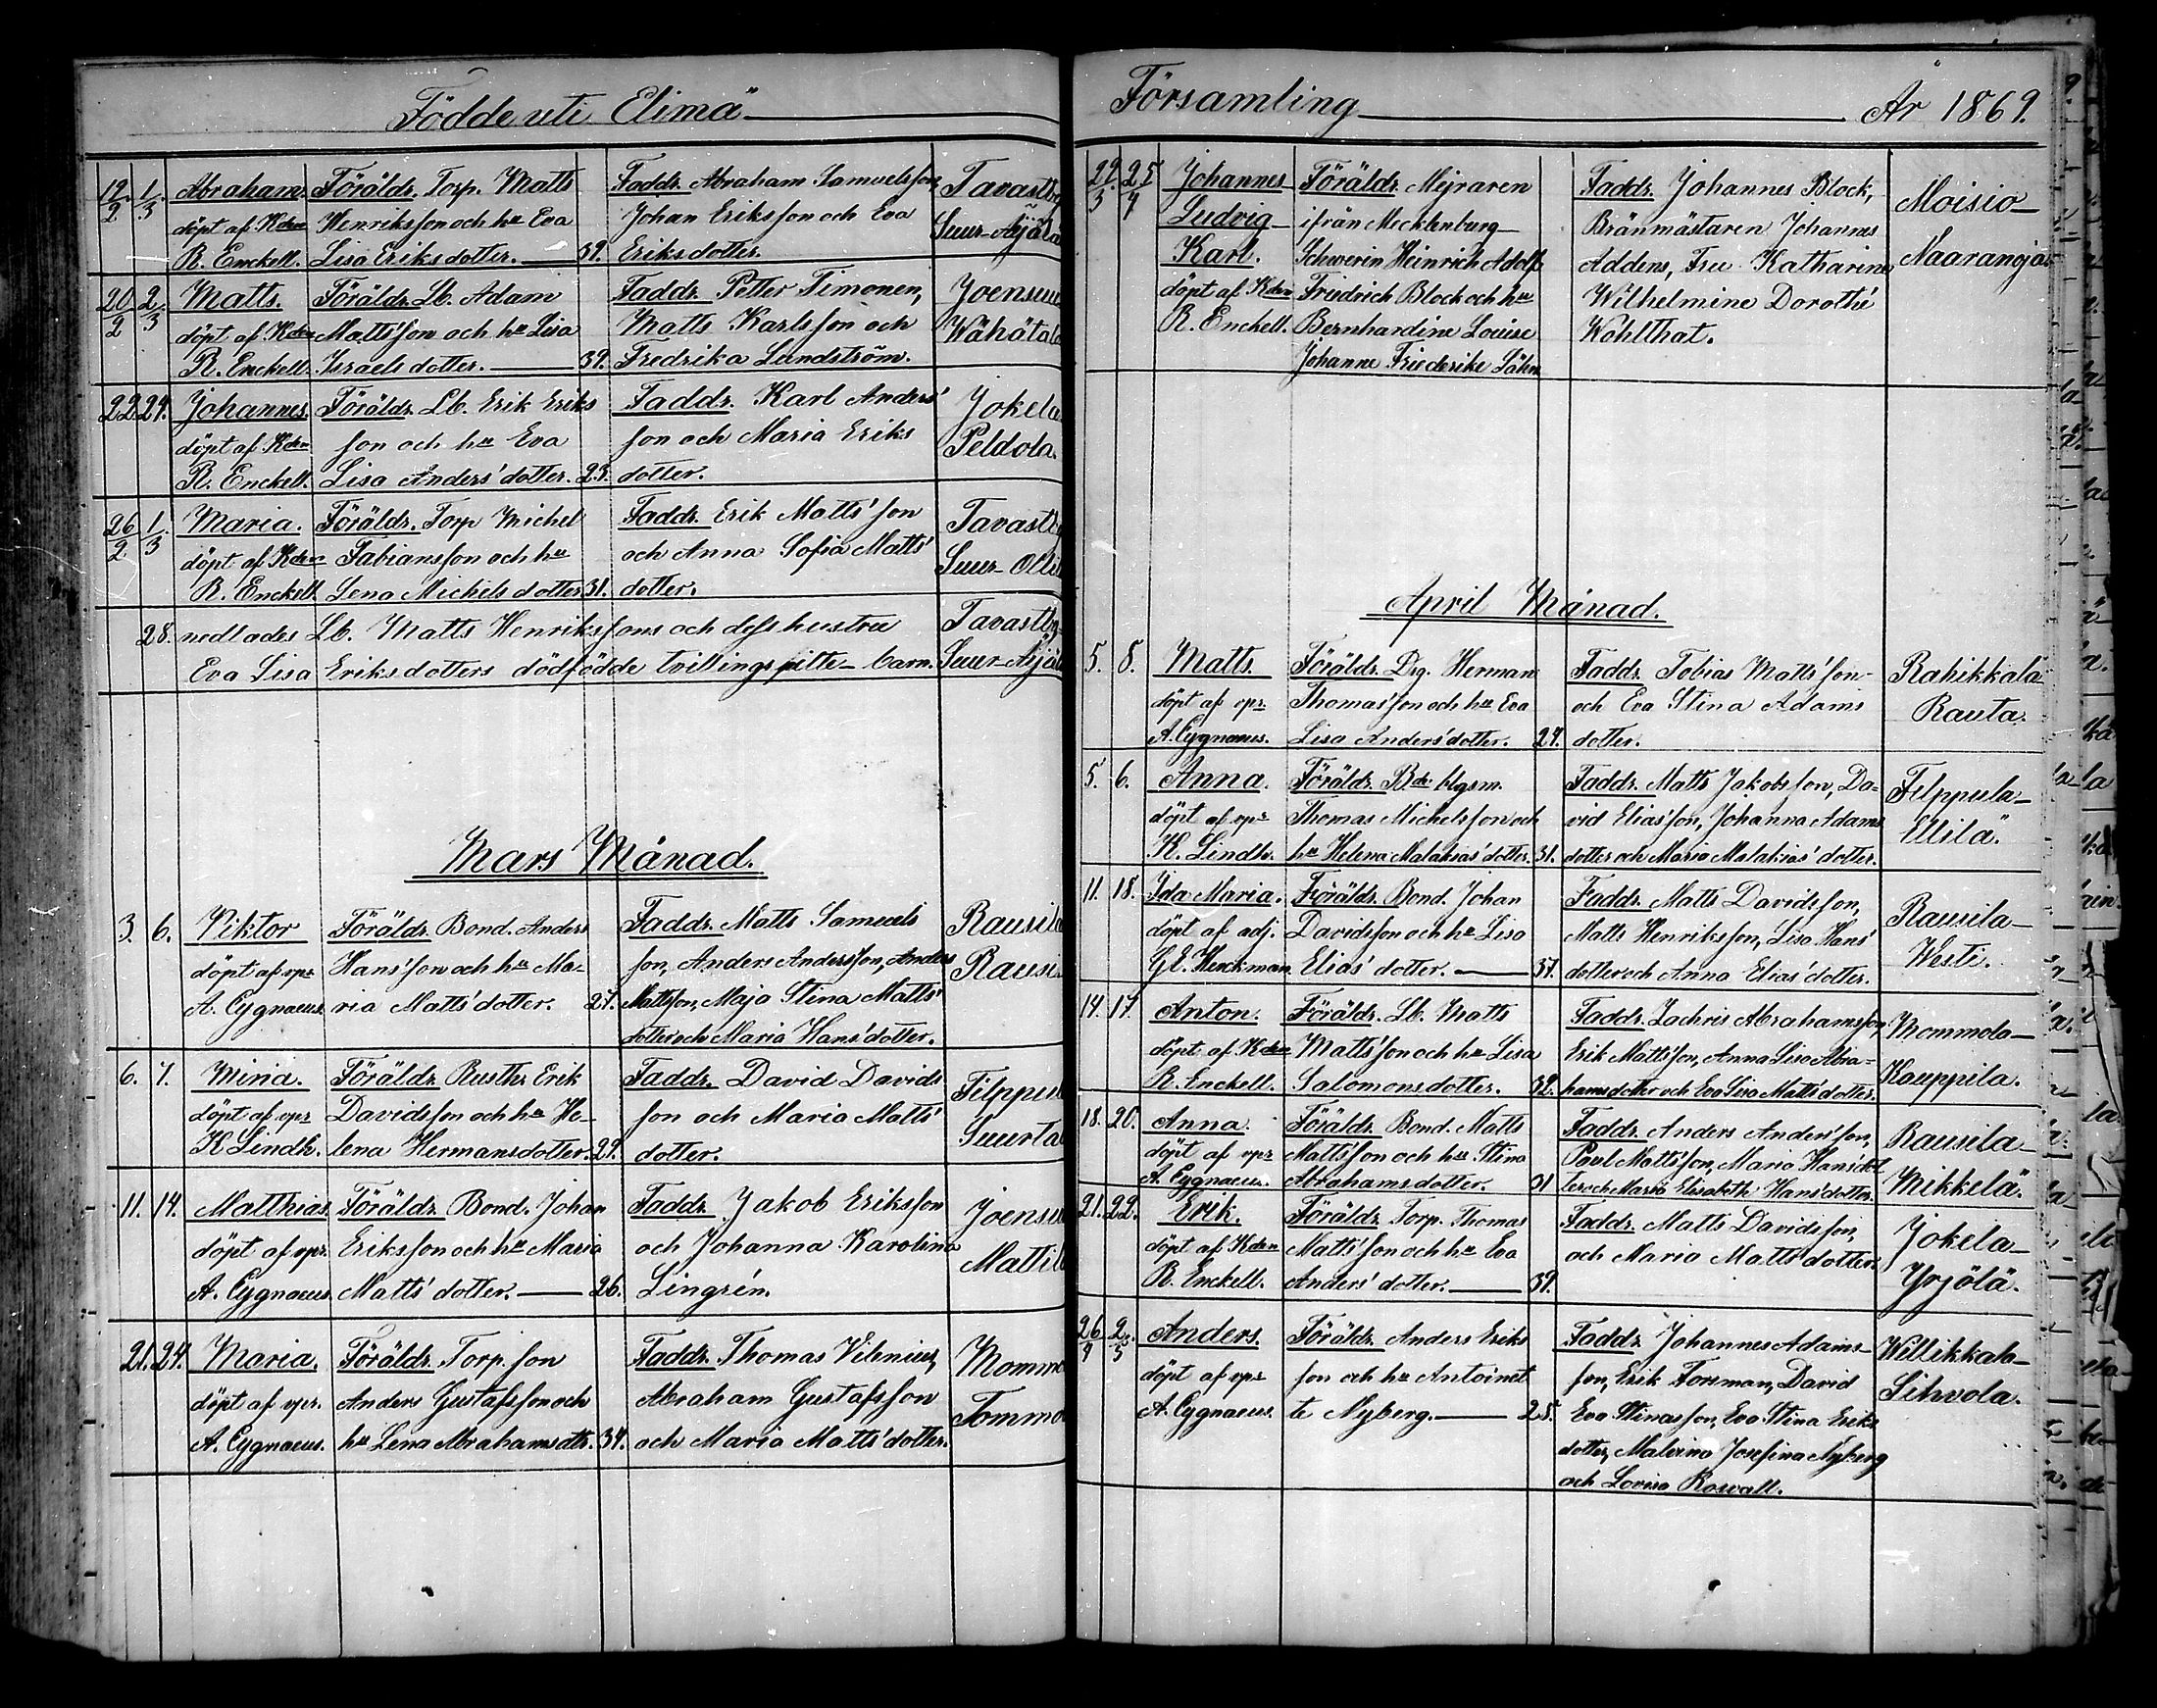 Födde uti Elimä
12/2 1/3 Abraham. Föräldr. Torp. Matts Faddr. Abraham Samuelsson, Tavastby
döpt af Kden Henriksson och hu Eva Johan Eriksson och Eva Suur-Äijälä
R. Enckell. Lisa Eriksdotter. 39. Eriksdotter.
20/2 2/3 Matts. Föräldr. Lb. Adam Faddr. Petter Timonen, Joensuu
döpt af Kden Matts'son och hu Lisa Matts Karlsson och Wähätalo
R. Enckell. Israelsdotter. 39. Fredrika Lundström.
22. 24. Johannes. Föräldr. Lb. Erik Eriks Faddr. Karl Anders' Jokela
döpt af Kden son och hu Eva son och Maria Eriks Peldola.
R. Enckell. Lisa Anders'dotter. 23. dotter.
26/2 1/3 Maria. Föräldr. Torp Michel Faddr. Erik Matts'son Tavastby
döpt af Kden Fabiansson och hu och Anna Sofia Matts' Suur-Olli
R. Enckell. Lena Michelsdotter 31. dotter.
28. nedlades Lb. Matts Henrikssons och dess hustru Tavastby
Eva Lisa Eriksdotters dödfödde tvillings barn. Suur-Äijälä
Mars Månad.
3. 6. Viktor Föräldr. Bond. Anders Faddr. Matts Samuels Rausila
döpt af vpr Hans'son och hu Ma- son, Anders Andersson, Anders Rausi
A. Cygnaeus. ria Matts'dotter. 27. Mattsson, Maja Stina Matts'
dotter och Maria Hans'dotter.
6. 7. Miina. Föräldr. Rusth. Erik Faddr. David Davids Filppula
döpt af vpr Davidsson och hu He- son och Maria Matts' Suurtalo
K. Lindh. lena Hermansdotter. 29. dotter.
11. 14. Matthias. Föräldr. Bond. Johan Faddr. Jakob Eriksson Joensuu
döpt af vpr. Eriksson och hu Maria och Johanna Karolina Mattila
A. Cygnaeus. Matts'dotter. 26. Lingrén.
21. 24. Maria. Föräldr. Torp. son Faddr. Thomas Vilenius, Mommo
döpt af vpr. Anders Gustafsson och Abraham Gustafsson Tommo
A. Cygnaeus. hu Lena Abrahamsdtr. 34. och Maria Matts'dotter.
Församling År 1869.
29/3 25/4 Johannes Föräldr. Mejraren Faddr. Johannes Block, Moisio-
Ludvig ifrån Mecklenburg- Bränmästaren Johannes Naaranoja
Karl. Schwerin Heinrich Adolf Addens, Fru Katharine
döpt af Kden Friedrich Block och hu Wilhelmine Dorothé
R. Enckell. Bernhardine Louise Wohlthat.
Johanne Friederike Lähn
April Månad.
5. 8. Matts. Föräldr. Drg. Herman Faddr. Tobias Matts'son Rahikkala
döpt af vpr. Thomas'son och hu Eva och Eva Stina Adams Rauta.
A. Cygnaeus. Lisa Anders'dotter. 24. dotter.
5. 6. Anna. Föräldr. Bde blgsm. Faddr. Matts Jakobsson, Da- Filppula-
döpt af vpr Thomas Michelsson och vid Elias'son, Johanna Adams Ellilä.
K. Lindh. hu Helena Malakias'dotter. 31. dotter och Maria Malakias'dotter.
11. 18. Ida Maria. Föräldr. Bond. Johan Faddr. Matts Davidsson, Rausila-
döpt af adj. Davidsson och hu Lisa Matts Henriksson, Lisa Hans' Westi.
G. E. Elias'dotter. 37. dotter och Anna Elias'dotter.
14. 17. Anton. Föräldr. Lb. Matts Faddr. Zachris Abrahamsson, Mommola-
döpt af Kden Matts'son och hu Lisa Erik Matts'son, Anna Lisa Abra- Kauppila.
R. Enckell. Salomonsdotter. 32. hamsdotter och Eva Lisa Matts'dotter.
18. 20. Anna Föräldr. Bond. Matts Faddr. Anders Anders'son, Rausila-
döpt af vpr Matts'son och hu Stina Paul Matts'son, Maria Hans'dot Mikkelä.
A. Cygnaeus. Abrahamsdotter. 31 ter och Maria Elisabeth Hans'dotter.
21. 22. Erik. Föräldr. Torp. Thomas Faddr. Matts Davidsson, Jokela-
döpt af Kden Matts'son och hu Eva och Maria Matts'dotter. Yrjölä.
R. Enckell. Anders'dotter. 39.
26/4 2/5 Anders. Föräldr. Anders Eriks Faddr. Johannes Adams- Willikkala-
döpt af vpr son och hu Antoinet son, Erik Forsman, David Sihvola.
A. Cygnaeus. te Nyberg. 25. Eva Stinasson, Eva Stina Eriks
dotter, Malvina Josefina Nyberg
och Lovisa Roswall.